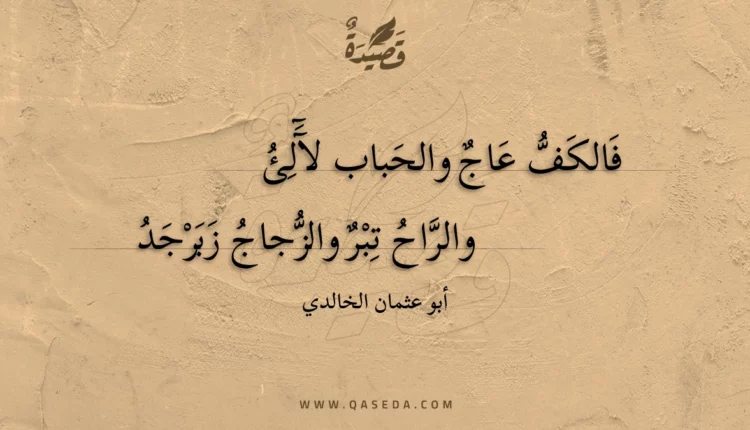 قَصِيْدَةٌ
فَالكَفُّ عَاجٌ والحَباب لآَلِئُ
والرَّاحُ تِبْرٌ والزُّجاجُ زَبَرْجَدُ
أبو عثمان الخالدي
WWW.QASEDA.COM